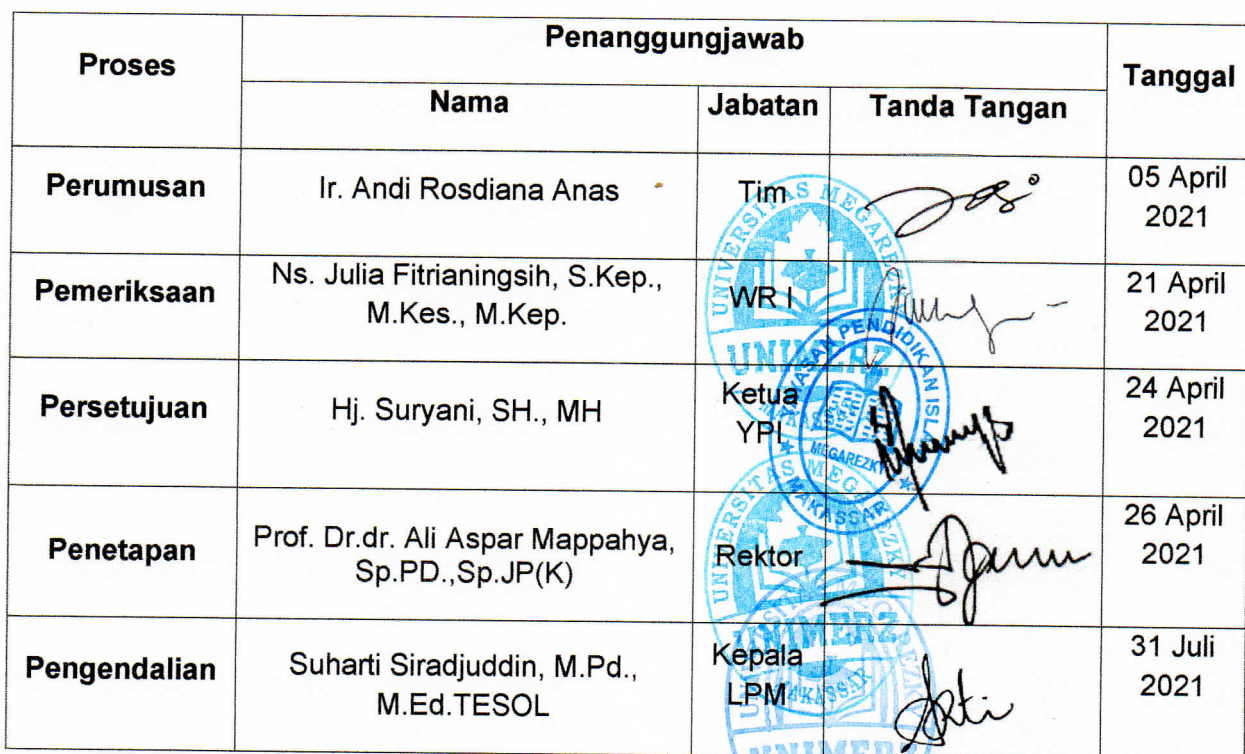 Proses
Penanggungjawab
Tanggal
Nama
Jabatan
Tanda Tangan
Perumusan
Ir. Andi Rosdiana Anas
Tim
05 April
2021
Pemeriksaan
Ns. Julia Fitrianingsih, S.Kep.,
M.Kes., M.Kep.
WR I
21 April
2021
Persetujuan
Hj. Suryani, SH., MH
Ketua
YPI
24 April
2021
Penetapan
Prof. Dr.dr. Ali Aspar Mappahya,
Sp.PD.,Sp.JP(K)
Rektor
26 April
2021
Pengendalian
Suharti Siradjuddin, M.Pd.,
M.Ed.TESOL
Kepala
LPM
31 Juli
2021
UNIVERSITAS MEGAREZKY
UNIMERZ
YAYASAN PENDIDIKAN ISLA
MEGAREZKY
MAKASSAR
UNIVERSITAS MEGAREZKY
UNIMERZ
MAKASSAR
UNIMERZ